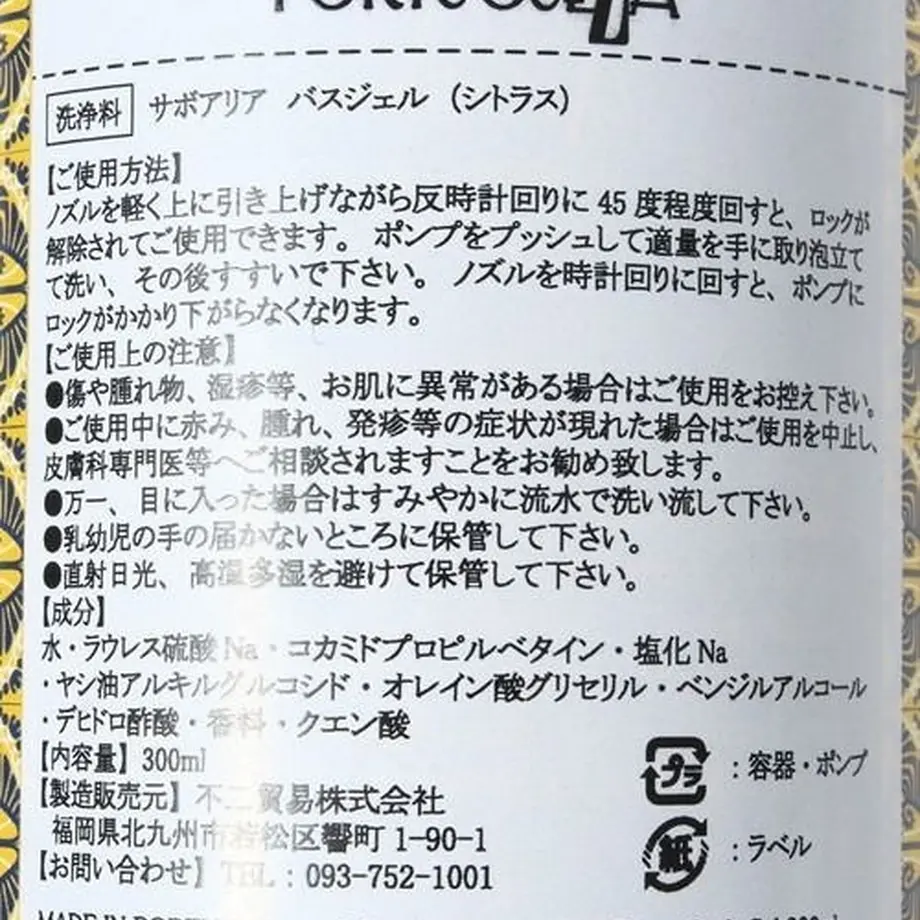 洗浄料 サボアリア バスジェル （シトラス）
【ご使用方法】
ノズルを軽く上に引き上げながら反時計回りに 45 度程度回すと、ロックが
解除されてご使用できます。 ポンプをプッシュして適量を手に取り泡立て
て洗い、その後すすいで下さい。 ノズルを時計回りに回すと、ポンプに
ロックがかかり下がらなくなります。
【ご使用上の注意】
●傷や腫れ物、湿疹等、お肌に異常がある場合はご使用をお控え下さい。
●ご使用中に赤み、腫れ、発疹等の症状が現れた場合はご使用を中止し、
皮膚科専門医等へご相談されますことをお勧め致します。
●万一、目に入った場合はすみやかに流水で洗い流して下さい。
●乳幼児の手の届かないところに保管して下さい。
●直射日光、高温多湿を避けて保管して下さい。
【成分】
水・ラウレス硫酸 Na・コカミドプロピルベタイン・塩化 Na
・ヤシ油アルキルグルコシド・オレイン酸グリセリル・ベンジルアルコール
・デヒドロ酢酸・香料・クエン酸
【内容量】 300ml
【製造販売元】 不二貿易株式会社
福岡県北九州市若松区響町 1-90-1
【お問い合わせ】 TEL : 093-752-1001
プラ : 容器・ポンプ
紙 : ラベル